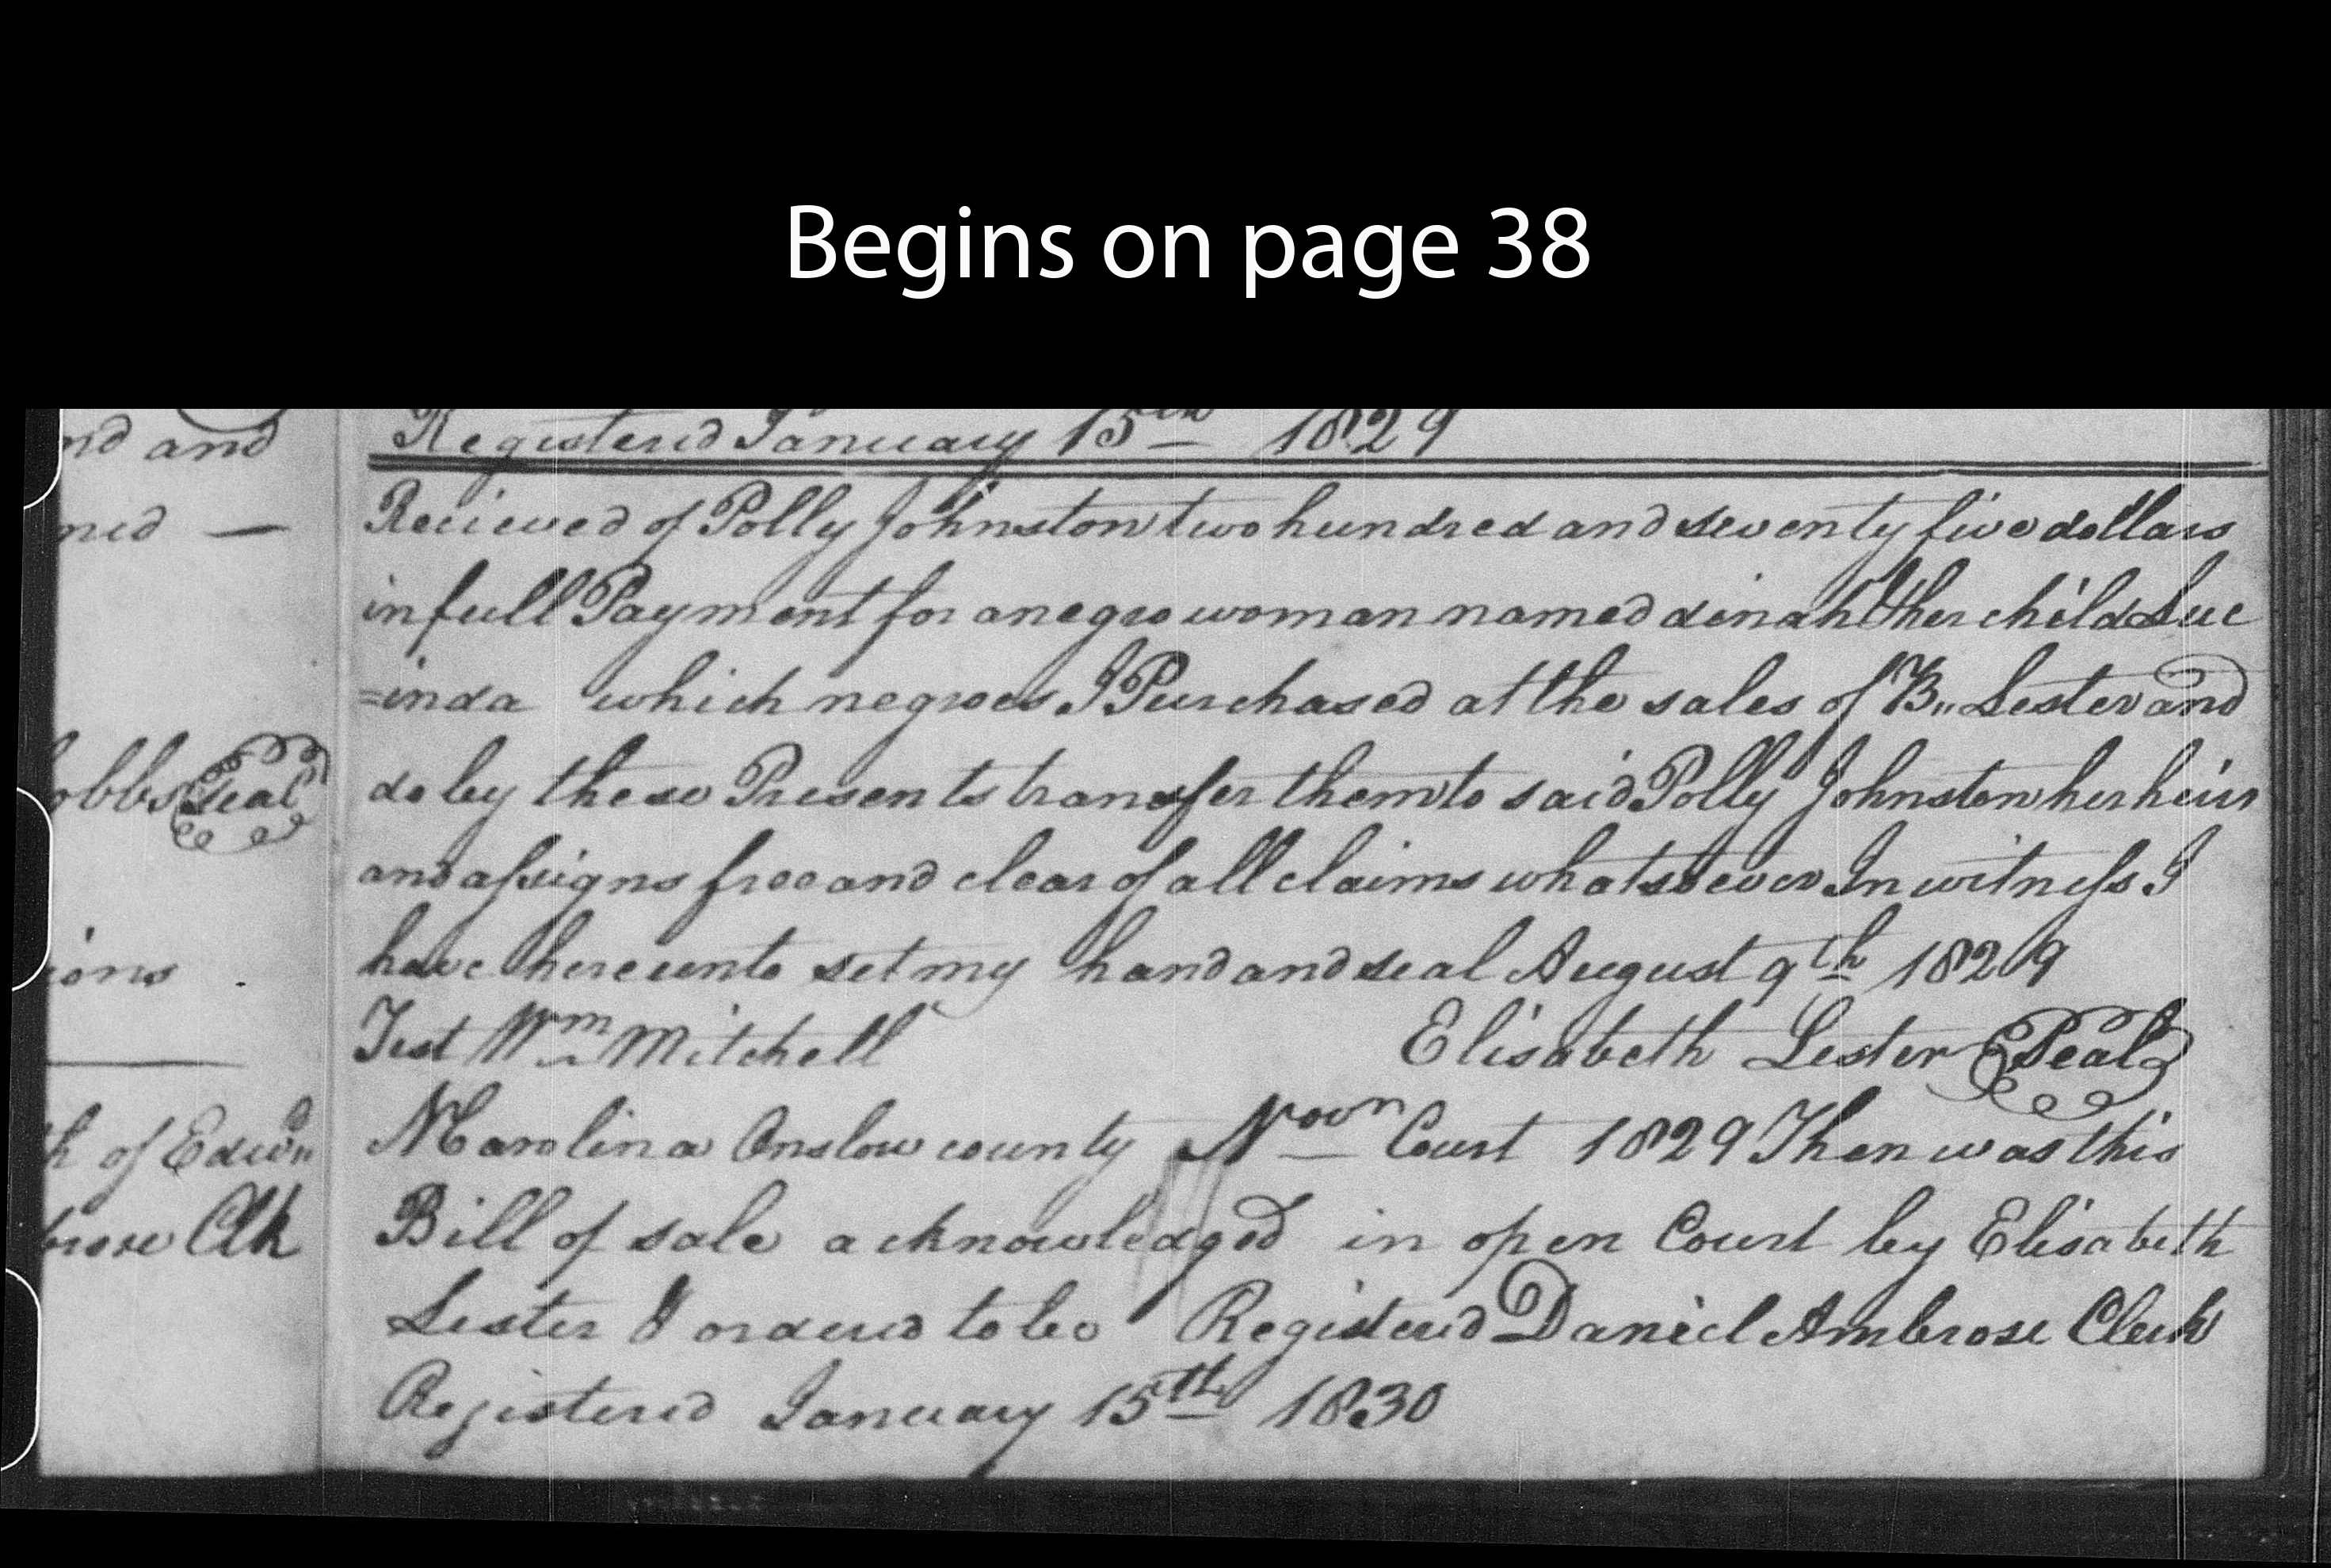 Begins on page 38
Registered January 15th 1829
nd and
ned —
obbs Seal
ions
h of Edwn
brose Clk
Recieved of Polly Johnston two hundred and seventy five dollars
in full Payment for a negro woman named dinah & her child Luc
=inda which negroes I Purchased at the sales of B,, Lester and
do by these Presents transfer them to said Polly Johnston her heirs
and assigns free and clear of all claims whatsoever In witness I
have hereunto set my hand and seal August 9th 1829
Test Wm Mitchell Elisabeth Lester Seal
N Carolina Onslow county Novr Court 1829 Then was this
Bill of sale acknowledged in open Court by Elisabeth
Lester & ordered to be Registered Daniel Ambrose Clerk
Registered January 15th 1830